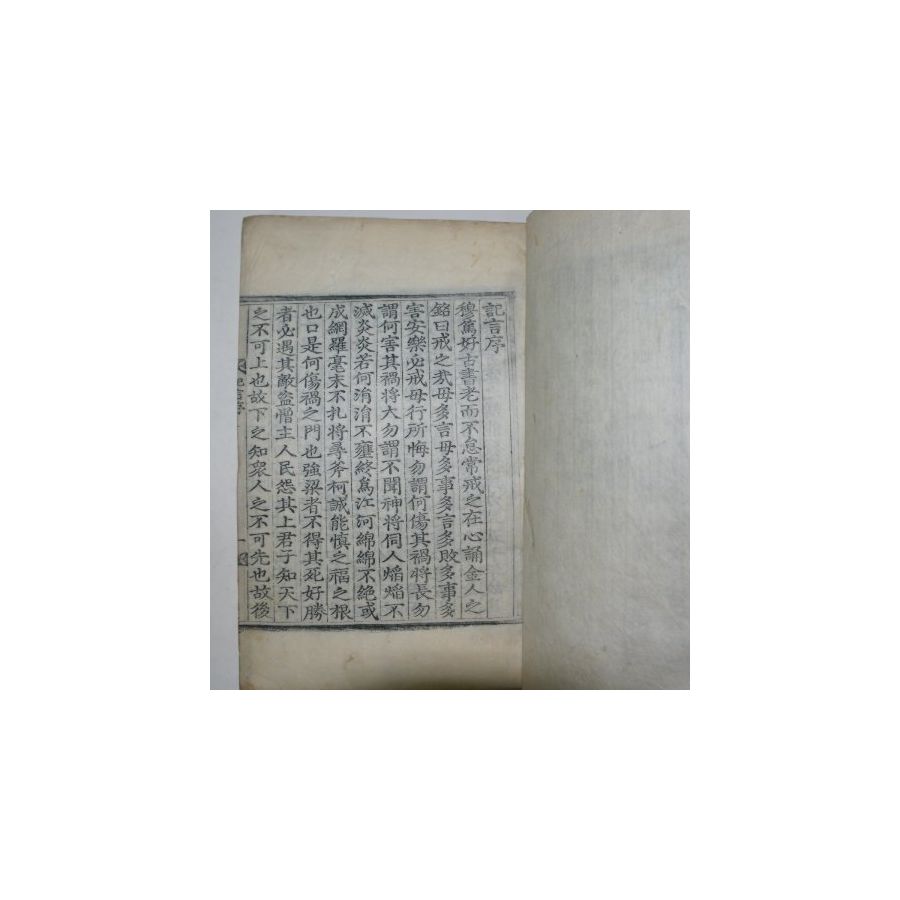 記言序
穆篤好古書老而不怠常戒之在心誦金人之
銘曰戒之㢤毋多言毋多事多言多敗多事多
害安樂必戒毋行所悔勿謂何傷其禍將長勿
謂何害其禍將大勿謂不聞神將伺人焰焰不
滅炎炎若何涓涓不壅終爲江河綿綿不絶或
成網羅毫末不扎將尋斧柯誠能愼之福之根
也口是何傷禍之門也強梁者不得其死好勝
者必遇其敵盜憎主人民怨其上君子知天下
之不可上也故下之知衆人之不可先也故後
記言序
一